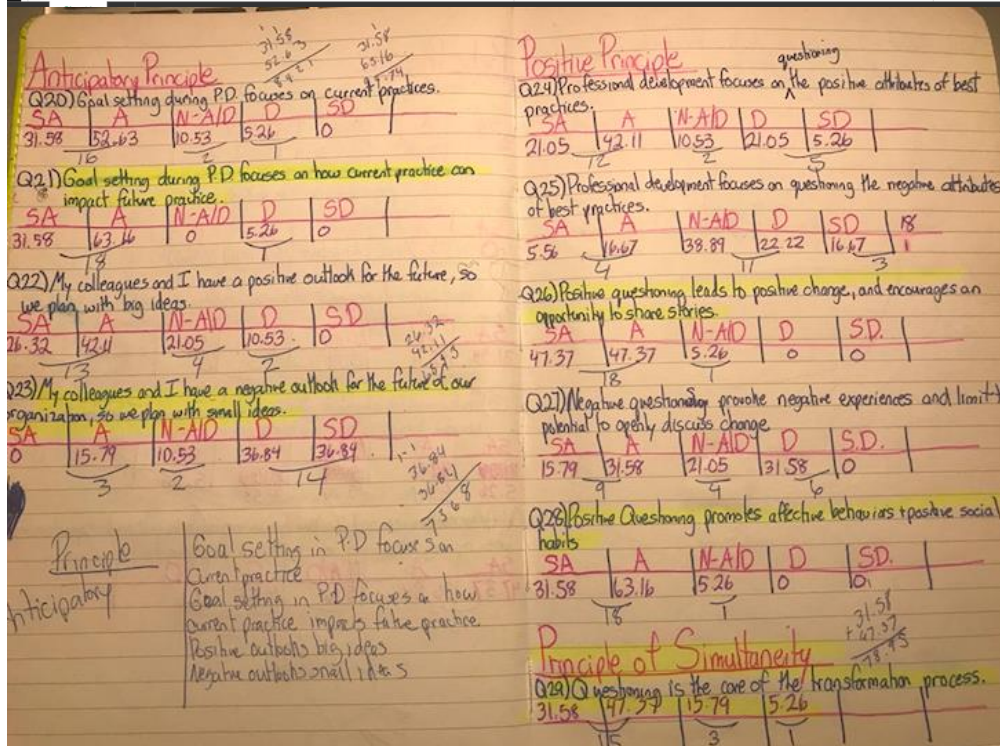 31.58
52.63
84.21
31.58
63.16
94.74
Anticipatory Principle
Q20) Goal setting during P.D. focuses on current practices.
SA A N-A/D D SD
31.58 52.63 10.53 5.26 0
16 2 1
Q21) Goal setting during P.D focuses on how current practice can
impact future practice.
SA A N-A/D D SD
31.58 63.16 0 5.26 0
18 1
Q22) My colleagues and I have a positive outlook for the future, so
we plan with big ideas.
SA A N-A/D D SD
26.32 42.11 21.05 10.53 0
13 4 2
26.32
42.11
Q23) My colleagues and I have a negative outlook for the future of our
organization, so we plan with small ideas.
SA A N-A/D D SD
0 15.79 10.53 36.84 36.84
3 2 14
36.84
36.84
73.68
Principle
nticipatory
Goal setting in P.D focuses on
current practice
Goal setting in P.D focuses on how
current practice impacts future practice
Positive outlooks big ideas
Negative outlooks small ideas
Positive Principle
questioning
Q24) Professional development focuses on the positive attributes of best
practices.
SA A N-A/D D SD
21.05 42.11 10.53 21.05 5.26
12 2 5
Q25) Professional development focuses on questioning the negative attributes
of best practices.
SA A N-A/D D SD 18
5.56 16.67 38.89 22.22 16.67 1
4 11 3
Q26) Positive questioning leads to positive change, and encourages an
opportunity to share stories.
SA A N-A/D D S.D.
47.37 47.37 5.26 0 0
18 1
Q27) Negative questioning provoke negative experiences and limit
potential to openly discuss change
SA A N-A/D D S.D.
15.79 31.58 21.05 31.58 0
9 4 6
Q28) Positive Questioning promotes affective behaviors + positive social
habits
SA A N-A/D D SD.
31.58 63.16 5.26 0 0
18 1
31.58
+ 47.37
78.95
Principle of Simultaneity
Q29) Questioning is the core of the transformation process.
31.58 47.37 15.79 5.26
15 3 1